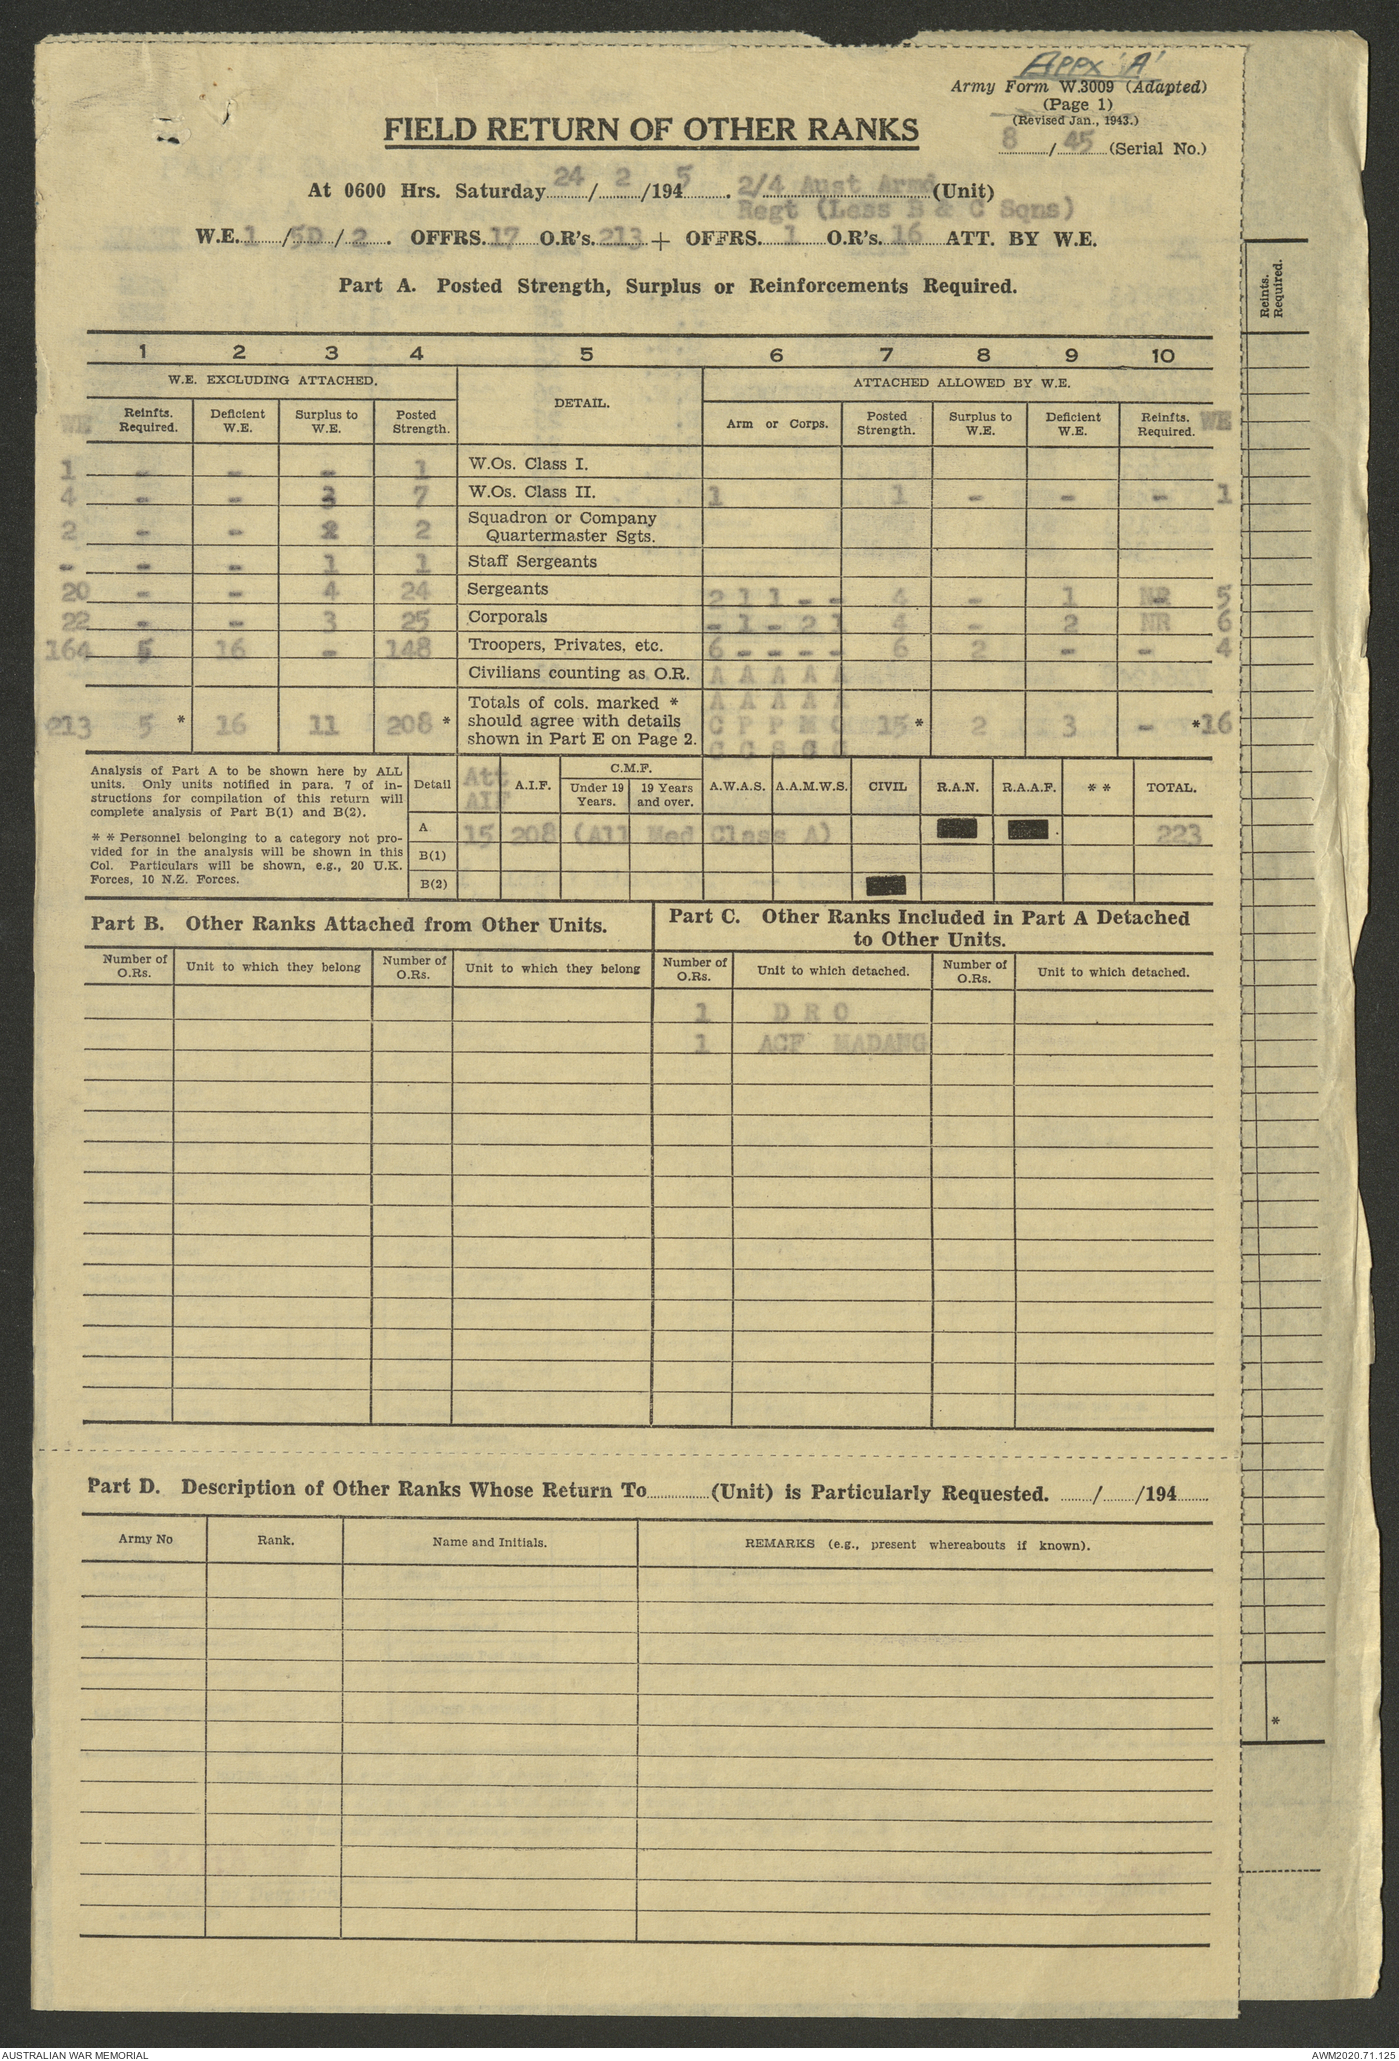 Appx 'A'
Army Form W.3009 (Adapted)
(Page 1)
(Revised Jan., 1943.)
8 / 45 (Serial No.)
FIELD RETURN OF OTHER RANKS
At 0600 Hrs. Saturday 24 / 2 /194 5 . 2/4 Aust Armd (Unit)
Regt (Less B & C Sqns)
W.E. 1 / 5D / 2 . OFFRS. 17 O.R's. 213 + OFFRS. 1 O.R's. 16 ATT. BY W.E.
Part A. Posted Strength, Surplus or Reinforcements Required.
1 2 3 4 5 6 7 8 9 10
W.E. EXCLUDING ATTACHED. DETAIL. ATTACHED ALLOWED BY W.E.
WE Reinfts. Required. Deficient W.E. Surplus to W.E. Posted Strength. Arm or Corps. Posted Strength. Surplus to W.E. Deficient W.E. Reinfts. Required. WE
1 - - - 1 W.Os. Class I.
4 - - 3 7 W.Os. Class II. 1 1 - - - 1
2 - - 2 Squadron or Company
Quartermaster Sgts.
- - - 1 1 Staff Sergeants
20 - - 4 24 Sergeants 2 1 1 - - 4 - 1 NR 5
22 - - 3 25 Corporals - 1 - 2 1 4 - 2 NR 6
164 5 16 - 148 Troopers, Privates, etc. 6 - - - - 6 2 - - 4
Civilians counting as O.R. A A A A A
Totals of cols. marked * A A A A A
213 5 * 16 11 208 * should agree with details C P P M O 15 * 2 3 - * 16
shown in Part E on Page 2. C C S C C
Analysis of Part A to be shown here by ALL
units. Only units notified in para. 7 of in-
structions for compilation of this return will
complete analysis of Part B(1) and B(2).
* * Personnel belonging to a category not pro-
vided for in the analysis will be shown in this
Col. Particulars will be shown, e.g., 20 U.K.
Forces, 10 N.Z. Forces.
Detail Att AIF A.I.F. C.M.F. Under 19 Years. 19 Years and over. A.W.A.S. A.A.M.W.S. CIVIL R.A.N. R.A.A.F. * * TOTAL.
A 15 208 (All Med Class A) 223
B(1)
B(2)
Part B. Other Ranks Attached from Other Units.
Number of O.Rs. Unit to which they belong Number of O.Rs. Unit to which they belong
Part C. Other Ranks Included in Part A Detached
to Other Units.
Number of O.Rs. Unit to which detached. Number of O.Rs. Unit to which detached.
1 D R O
1 ACF MADANG
Part D. Description of Other Ranks Whose Return To (Unit) is Particularly Requested. / /194
Army No Rank. Name and Initials. REMARKS (e.g., present whereabouts if known).
Reinfts.
Required.
*
AUSTRALIAN WAR MEMORIAL
AWM2020.71.125